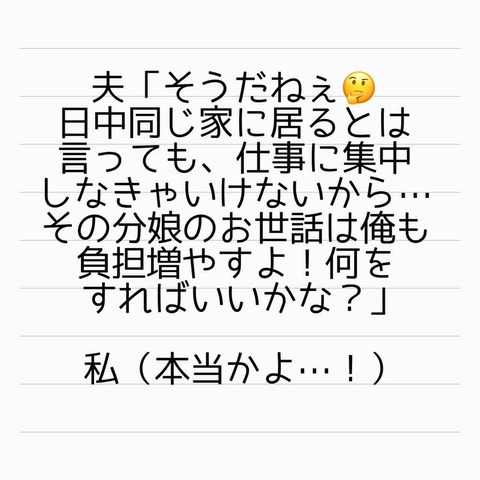 夫「そうだねぇ🤔
日中同じ家に居るとは
言っても、仕事に集中
しなきゃいけないから…
その分娘のお世話は俺も
負担増やすよ！何を
すればいいかな？」
私（本当かよ…！）